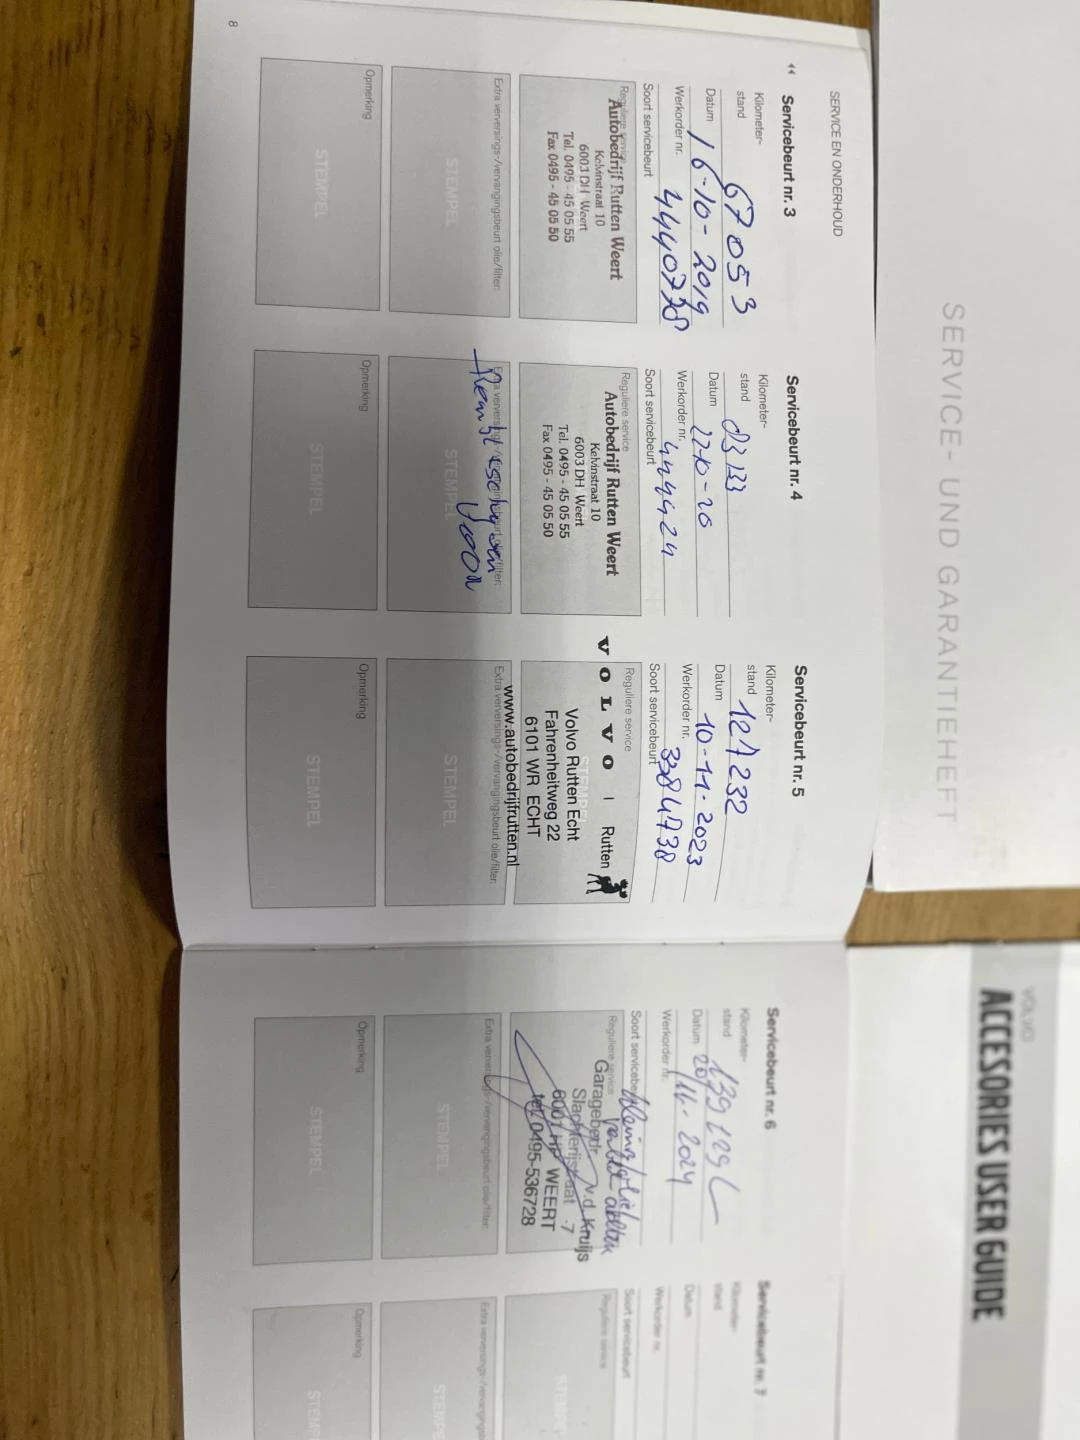 SERVICE EN ONDERHOUD
Servicebeurt nr. 3
Kilometer-
stand 67053
Datum 16-10-2019
Werkorder nr. 4440778
Soort servicebeurt
Reguliere service
Autobedrijf Rutten Weert
Kelvinstraat 10
6003 DH Weert
Tel. 0495 - 45 05 55
Fax 0495 - 45 05 50
Extra verversings-/vervangingsbeurt olie/filter:
STEMPEL
Opmerking
STEMPEL
8
Servicebeurt nr. 4
Kilometer-
stand 83133
Datum 22-10-20
Werkorder nr. 4444424
Soort servicebeurt
Reguliere service
Autobedrijf Rutten Weert
Kelvinstraat 10
6003 DH Weert
Tel. 0495 - 45 05 55
Fax 0495 - 45 05 50
Extra verversings-/vervangingsbeurt olie/filter:
STEMPEL
Opmerking
STEMPEL
Servicebeurt nr. 5
Kilometer-
stand 127232
Datum 10-11-2023
Werkorder nr. 3384738
Soort servicebeurt
Reguliere service
VOLVO | Rutten
Volvo Rutten Echt
Fahrenheitweg 22
6101 WR ECHT
www.autobedrijfrutten.nl
Extra verversings-/vervangingsbeurt olie/filter:
STEMPEL
Opmerking
STEMPEL
Servicebeurt nr. 6
Kilometer-
stand 139129
Datum 20/11-2024
Werkorder nr.
Soort servicebeurt
Reguliere service
Garagebedr. v.d. Kruijs
Slachterijstraat 7
6001 HP WEERT
tel. 0495-536728
Extra verversings-/vervangingsbeurt olie/filter:
STEMPEL
Opmerking
STEMPEL
Servicebeurt nr. 7
Kilometer-
stand
Datum
Werkorder nr.
Soort servicebeurt
Reguliere service
STEMPEL
Extra verversings-/vervangingsbeurt
STEMPEL
Opmerking
STEMPEL
SERVICE- UND GARANTIEHEFT
VOLVO
ACCESORIES USER GUIDE